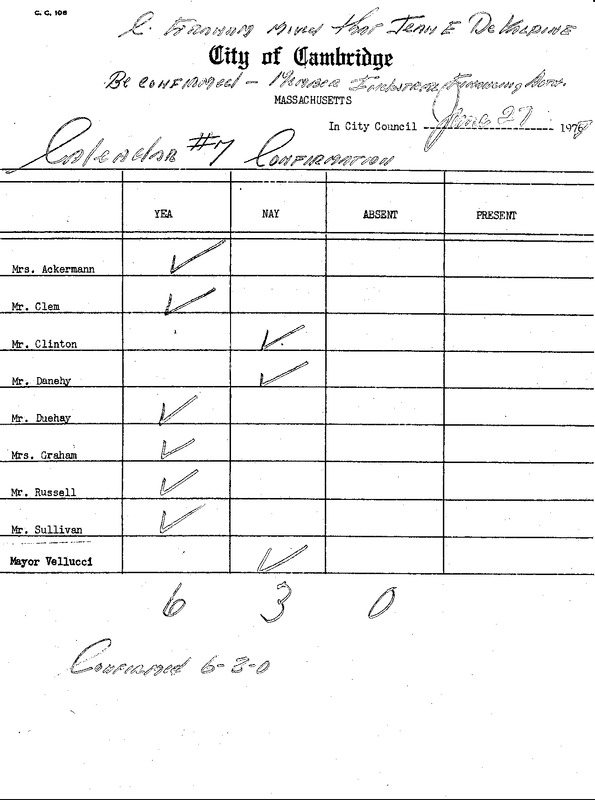 C. C. 106
that Jean E De
City of Cambridge
Be confirmed - Member Industrial Financing
MASSACHUSETTS
In City Council June 27 1976
Calendar #7 Confirmation
YEA NAY ABSENT PRESENT
Mrs. Ackermann ✓
Mr. Clem ✓
Mr. Clinton ✓
Mr. Danehy ✓
Mr. Duehay ✓
Mrs. Graham ✓
Mr. Russell ✓
Mr. Sullivan ✓
Mayor Vellucci ✓
6 3 0
Confirmed 6-3-0